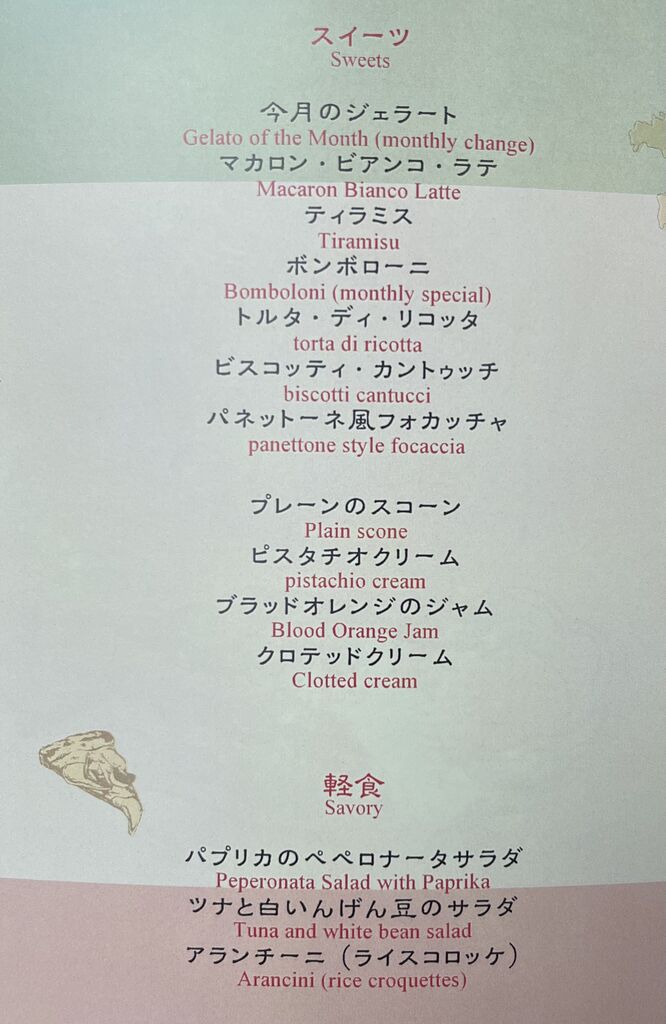 スイーツ
Sweets
今月のジェラート
Gelato of the Month (monthly change)
マカロン・ビアンコ・ラテ
Macaron Bianco Latte
ティラミス
Tiramisu
ボンボローニ
Bomboloni (monthly special)
トルタ・ディ・リコッタ
torta di ricotta
ビスコッティ・カントゥッチ
biscotti cantucci
パネットーネ風フォカッチャ
panettone style focaccia
プレーンのスコーン
Plain scone
ピスタチオクリーム
pistachio cream
ブラッドオレンジのジャム
Blood Orange Jam
クロテッドクリーム
Clotted cream
軽食
Savory
パプリカのペペロナータサラダ
Peperonata Salad with Paprika
ツナと白いんげん豆のサラダ
Tuna and white bean salad
アランチーニ（ライスコロッケ）
Arancini (rice croquettes)